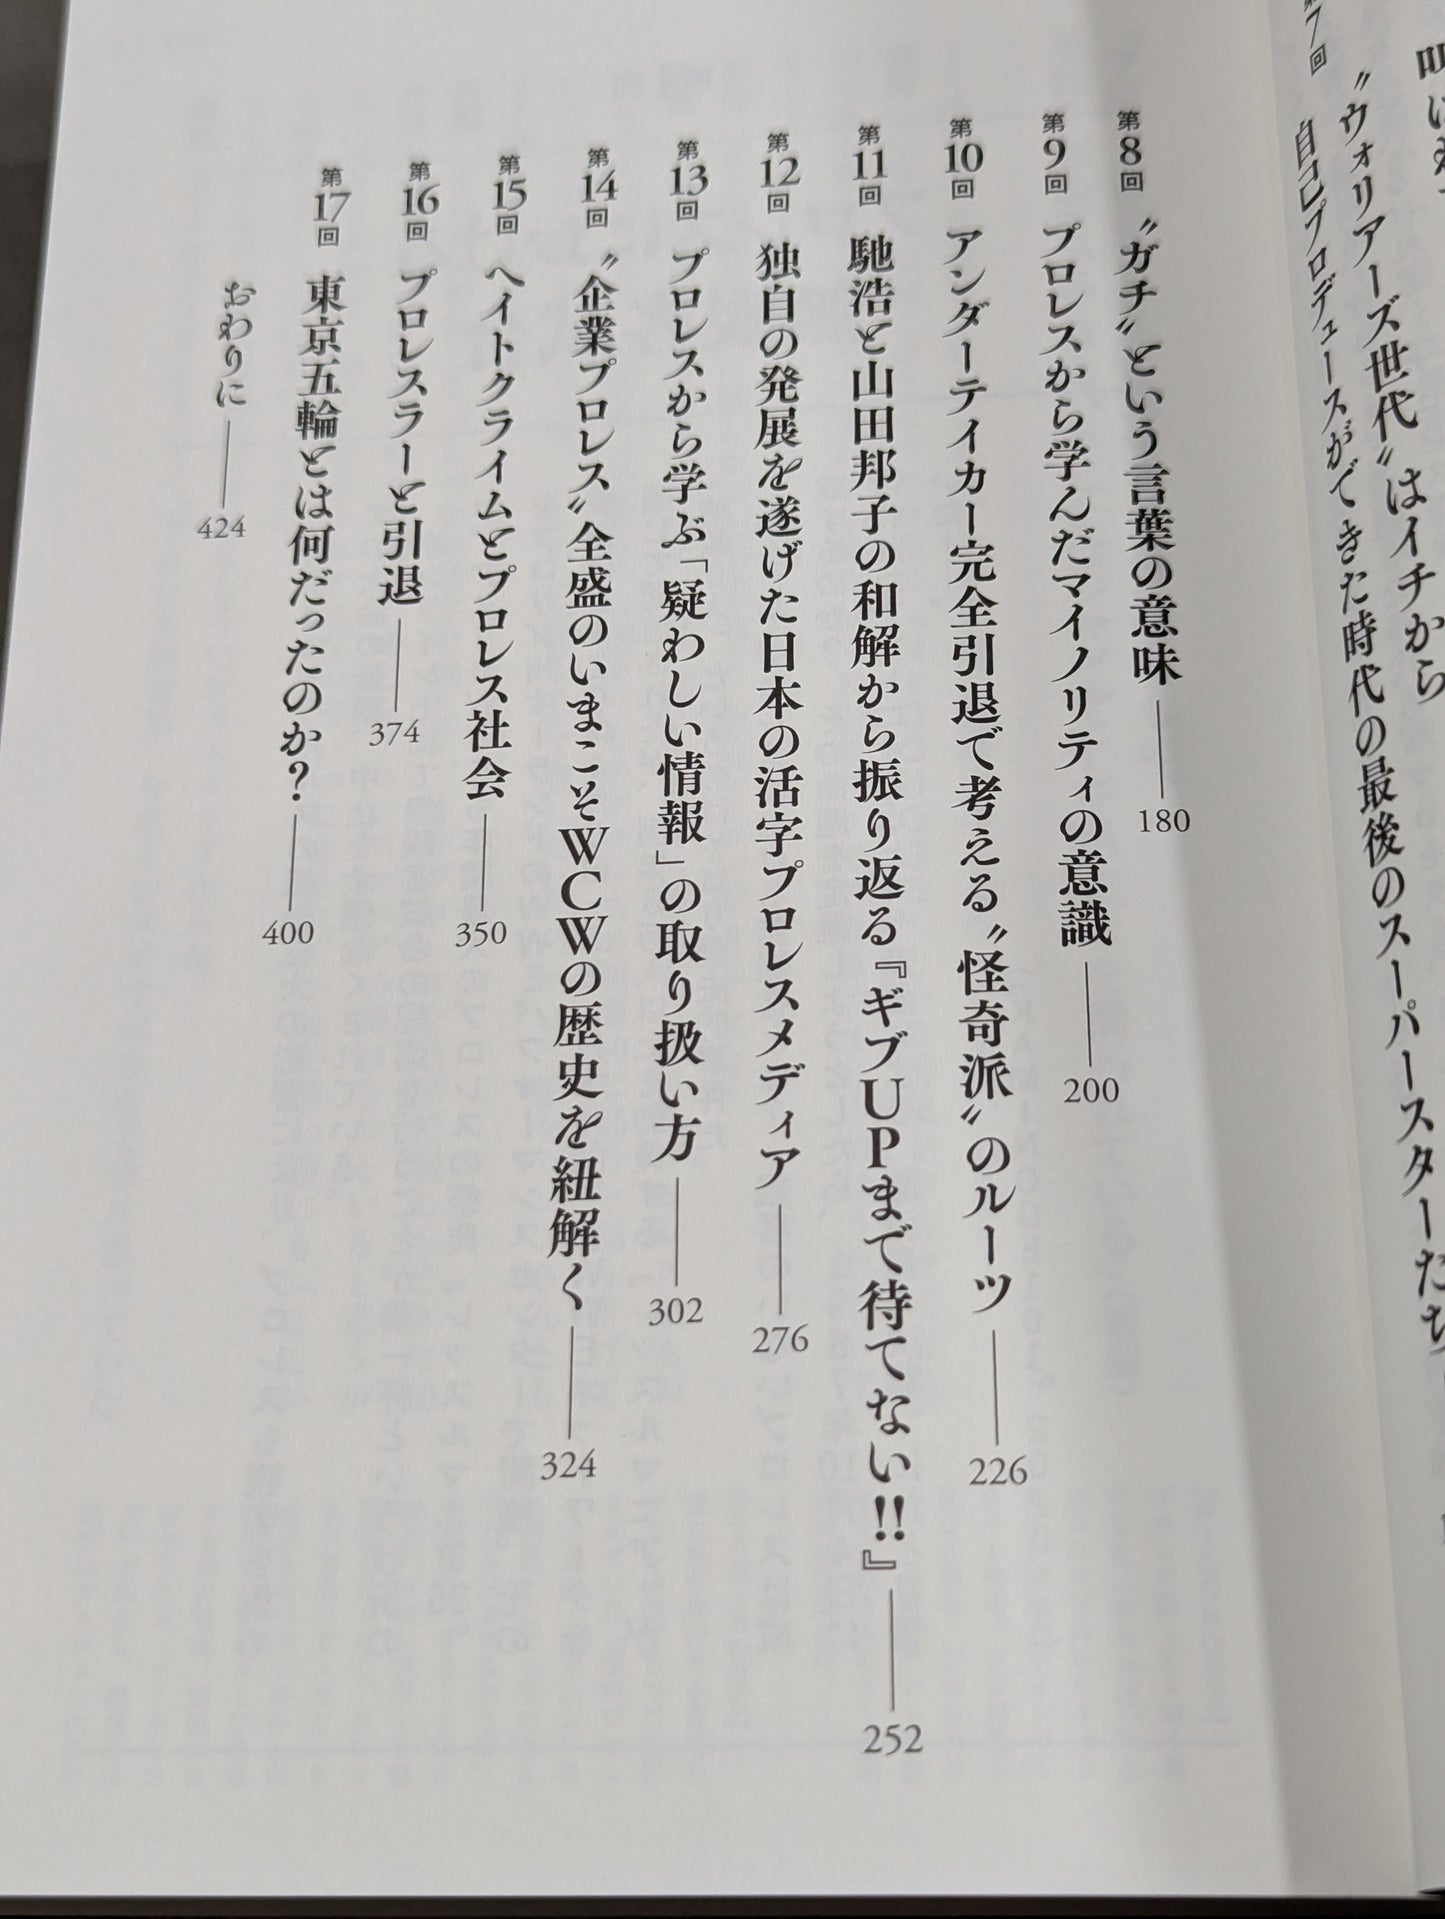 叩
〝ウォリアーズ世代〟はイチから
第7回 自己プロデュースができた時代の最後のスーパースターたち
第8回 〝ガチ〟という言葉の意味 180
第9回 プロレスから学んだマイノリティの意識 200
第10回 アンダーテイカー完全引退で考える〝怪奇派〟のルーツ 226
第11回 馳浩と山田邦子の和解から振り返る『ギブUPまで待てない!!』 252
第12回 独自の発展を遂げた日本の活字プロレスメディア 276
第13回 プロレスから学ぶ「疑わしい情報」の取り扱い方 302
第14回 〝企業プロレス〟全盛のいまこそWCWの歴史を紐解く 324
第15回 ヘイトクライムとプロレス社会 350
第16回 プロレスラーと引退 374
第17回 東京五輪とは何だったのか? 400
おわりに 424